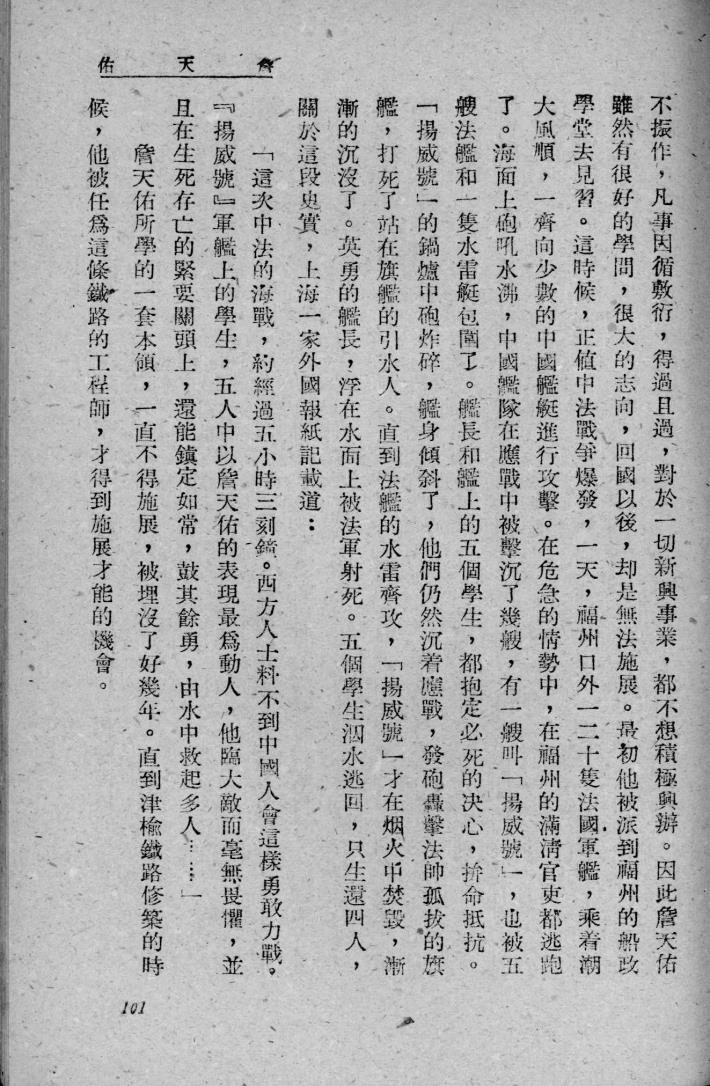 詹天佑
不振作，凡事因循敷衍，得過且過，對於一切新興事業，都不想積極興辦。因此詹天佑
雖然有很好的學問，很大的志向，回國以後，却是無法施展。最初他被派到福州的船政
學堂去見習。這時候，正値中法戰爭爆發，一天，福州口外一二十隻法國軍艦，乘着潮
大風順，一齊向少數的中國艦艇進行攻擊。在危急的情勢中，在福州的滿淸官吏都逃跑
了。海面上砲吼水沸，中國艦隊在應戰中被擊沉了幾艘，有一艘叫「揚威號」，也被五
艘法艦和一隻水雷艇包圍了。艦長和艦上的五個學生，都抱定必死的決心，拚命抵抗。
「揚威號」的鍋爐中砲炸碎，艦身傾斜了，他們仍然沉着應戰，發砲轟擊法帥孤拔的旗
艦，打死了站在旗艦的引水人。直到法艦的水雷齊攻，「揚威號」才在烟火中焚毀，漸
漸的沉沒了。英勇的艦長，浮在水面上被法軍射死。五個學生泅水逃回，只生還四人，
關於這段史實，上海一家外國報紙記載道：
「這次中法的海戰，約經過五小時三刻鐘。西方人士料不到中國人會這樣勇敢力戰。
『揚威號』軍艦上的學生，五人中以詹天佑的表現最爲動人，他臨大敵而毫無畏懼，並
且在生死存亡的緊要關頭上，還能鎭定如常，鼓其餘勇，由水中救起多人……」
詹天佑所學的一套本領，一直不得施展，被埋沒了好幾年。直到津榆鐵路修築的時
候，他被任爲這條鐵路的工程師，才得到施展才能的機會。
101